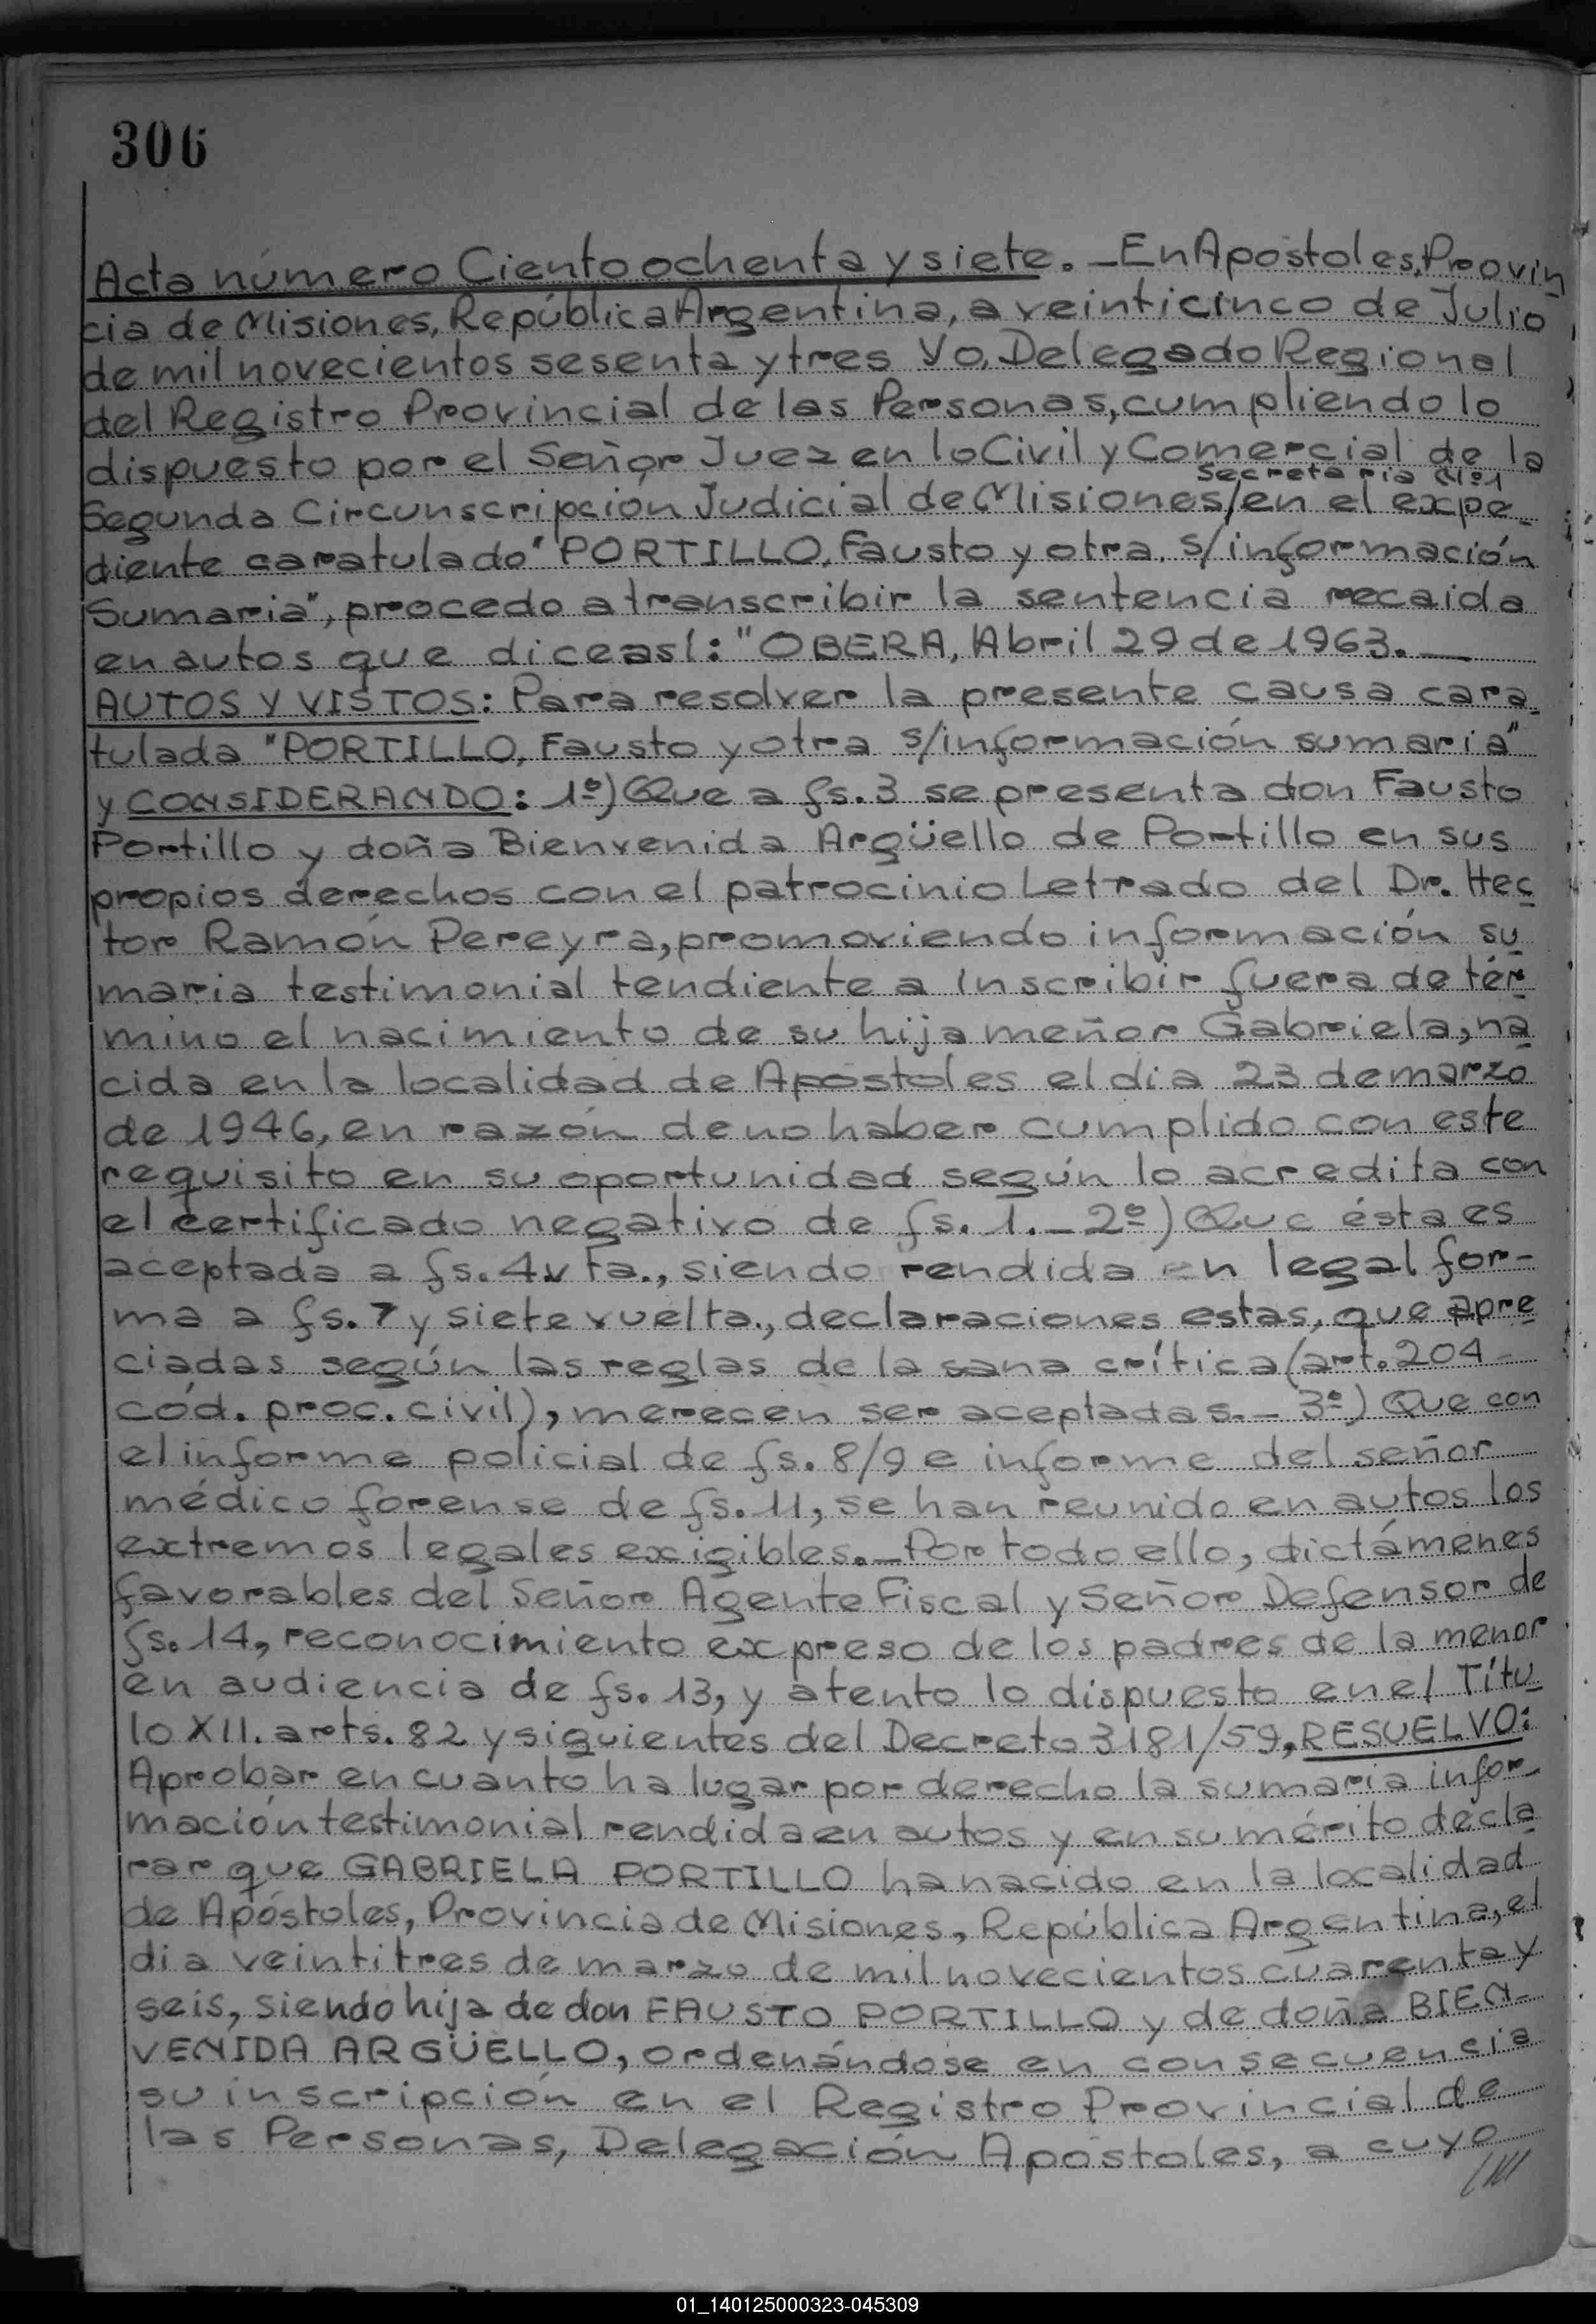 306
Acta número Ciento ochenta y siete. _ En Apóstoles, Provin
cia de Misiones, República Argentina, a veinticinco de Julio
de mil novecientos sesenta y tres Yo, Delegado Regional
del Registro Provincial de las Personas, cumpliendo lo
dispuesto por el Señor Juez en lo Civil y Comercial de la
Secretaria Nº 1
Segunda Circunscripción Judicial de Misiones/en el expe_
diente caratulado "PORTILLO, Fausto y otra. s/información
Sumaria", procedo a transcribir la sentencia recaida
en autos que dice así: "OBERA, Abril 29 de 1963. __
AUTOS Y VISTOS: Para resolver la presente causa cara_
tulada "PORTILLO, Fausto y otra s/información sumaria"
y CONSIDERANDO: 1º) Que a fs. 3 se presenta don Fausto
Portillo y doña Bienvenida Argüello de Portillo en sus
propios derechos con el patrocinio Letrado del Dr. Hec
tor Ramón Pereyra, promoviendo información su
maria testimonial tendiente a inscribir fuera de tér
mino el nacimiento de su hija meñor Gabriela, na
cida en la localidad de Apóstoles el dia 23 de marzo
de 1946, en razón de no haber cumplido con este
requisito en su oportunidad según lo acredita con
el certificado negativo de fs. 1. _ 2º) Que ésta es
aceptada a fs. 4 vta., siendo rendida en legal for-
ma a fs. 7 y siete vuelta., declaraciones estas, que apre
ciadas según las reglas de la sana crítica (art. 204 -
cód. proc. civil), merecen ser aceptadas. _ 3º) Que con
el informe policial de fs. 8/9 e informe del señor
médico forense de fs. 11, se han reunido en autos los
extremos legales exigibles. _ Por todo ello, dictámenes
favorables del Señor Agente Fiscal y Señor Defensor de
fs. 14, reconocimiento expreso de los padres de la menor
en audiencia de fs. 13, y atento lo dispuesto en el Títu_
lo XII. arts. 82 y siguientes del Decreto 3181/59, RESUELVO:
Aprobar en cuanto ha lugar por derecho la sumaria infor_
mación testimonial rendida en autos y en su mérito decla
rar que GABRIELA PORTILLO ha nacido en la localidad
de Apóstoles, Provincia de Misiones, República Argentina, el
dia veintitres de marzo de mil novecientos cuarenta y
seis, siendo hija de don FAUSTO PORTILLO y de doña BIEN_
VENIDA ARGÜELLO, ordenándose en consecuencia
su inscripción en el Registro Provincial de
las Personas, Delegación Apóstoles, a cuyo
////
01_140125000323-045309